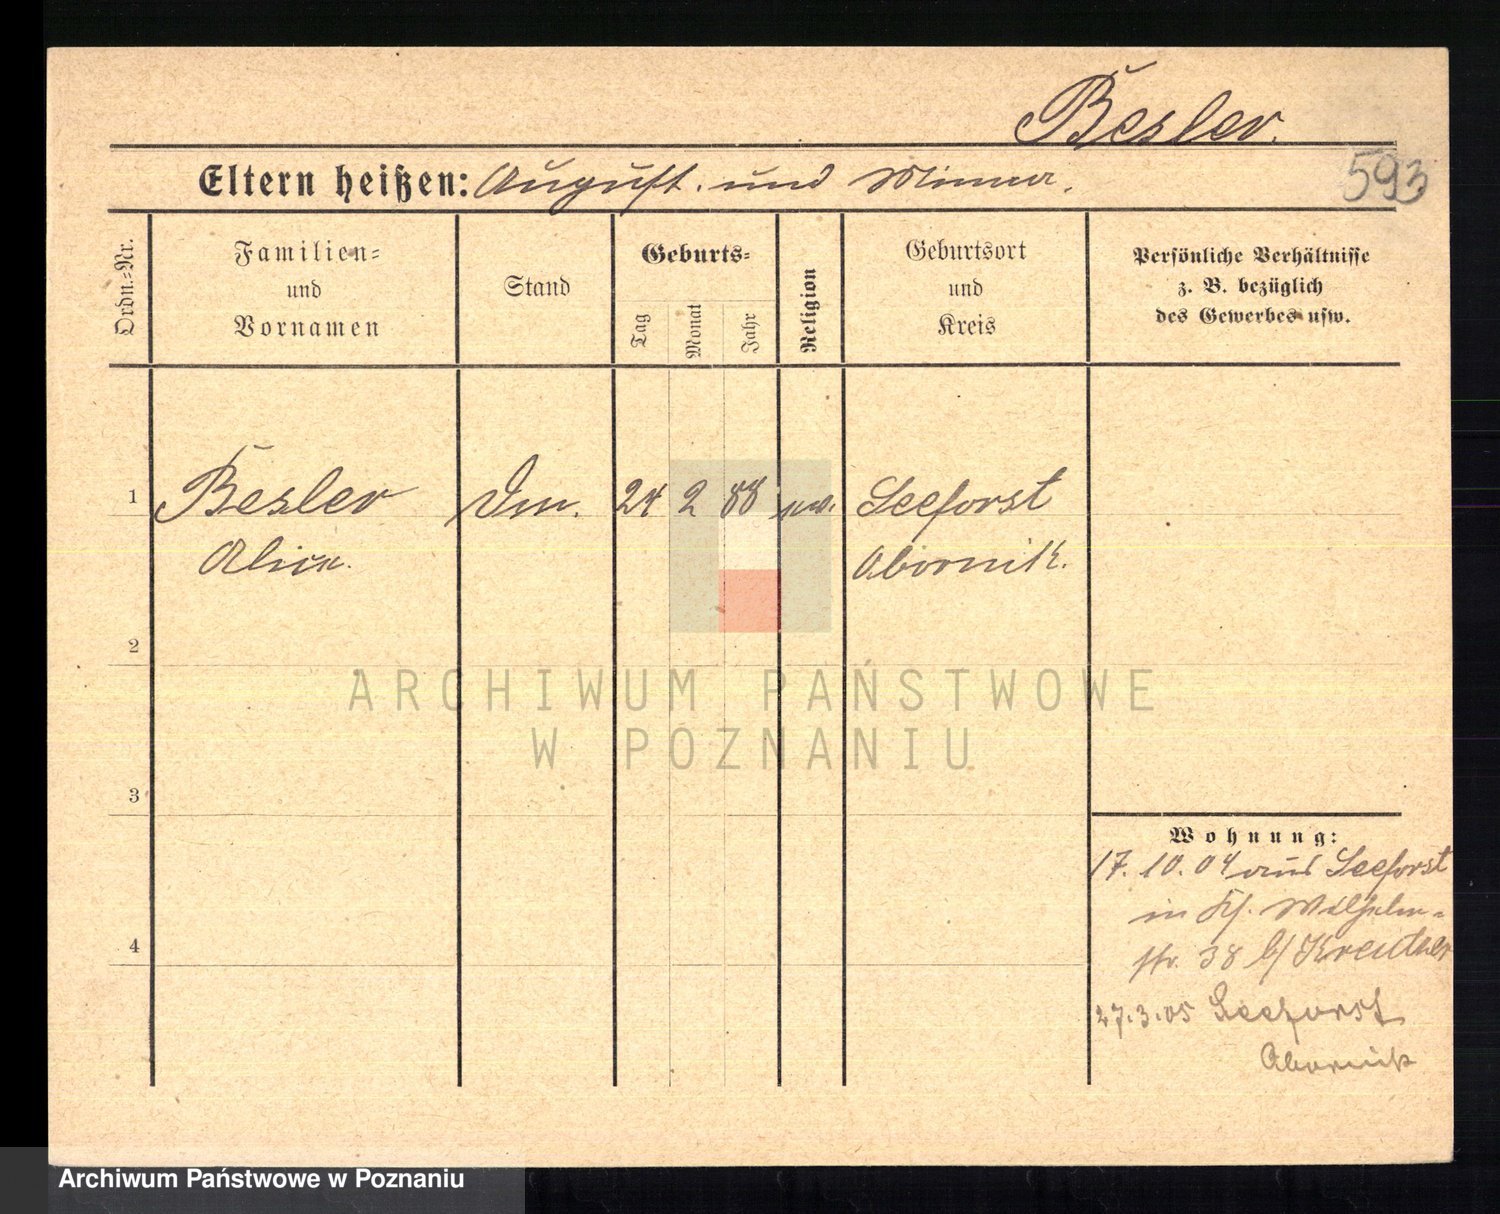 Besler.
593
Eltern heißen: August. und Minna.
Ordn.=Nr.
Familien=
und
Vornamen
Stand
Geburts=
Tag
Monat
Jahr
Religion
Geburtsort
und
Kreis
Persönliche Verhältnisse
z. B. bezüglich
des Gewerbes usw.
1
Besler
24 2 88
Seeforst
Obornik.
2
ARCHIWUM PAŃSTWOWE
W POZNANIU
3
Wohnung:
17. 10. 04 aus Seeforst
in Wilhelm-
4
str. 38 b/ Kreutner
27.3.05 Seeforst
Obornik
Archiwum Państwowe w Poznaniu